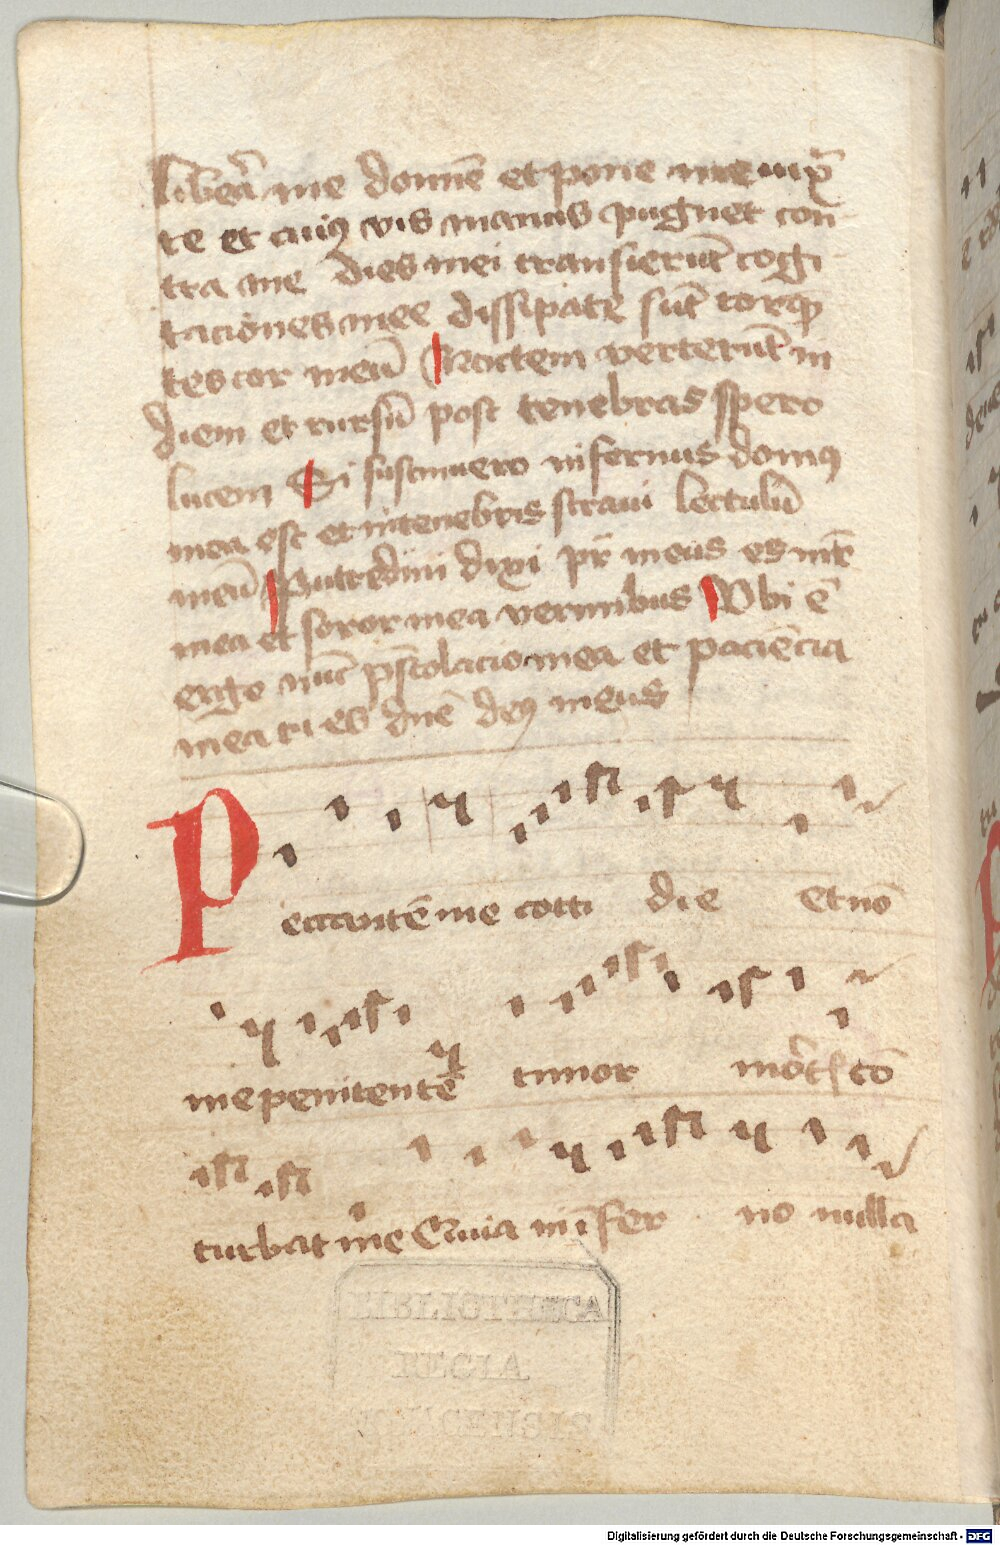 liberā me domīe et pone me iuxͣ
te et cuiꝯ vis manus pugnet con
tra me dies mei transierūt cogi
taciones mee dissipate sūt torqꝫ
tes cor meū Noctem verterūt in
diem et rursū post tenebras spero
lucem Si sustinuero infernus domꝯ
mea est et in tenebris straui lectulū
meū Putredini dixi pr̄ meus es mr̄
mea et soror mea vermibus Vbi ē
ergo nūc p̄stolacio mea et paciēcia
mea tu es dn̄e deꝯ meus
Peccantē me cotti die et nō
me penitentē timor mort̄ cō
turbat me Quia in īfer no nulla
BIBLIOTHECA
REGIA
MONACENSIS
Digitalisierung gefördert durch die Deutsche Forschungsgemeinschaft - DFG